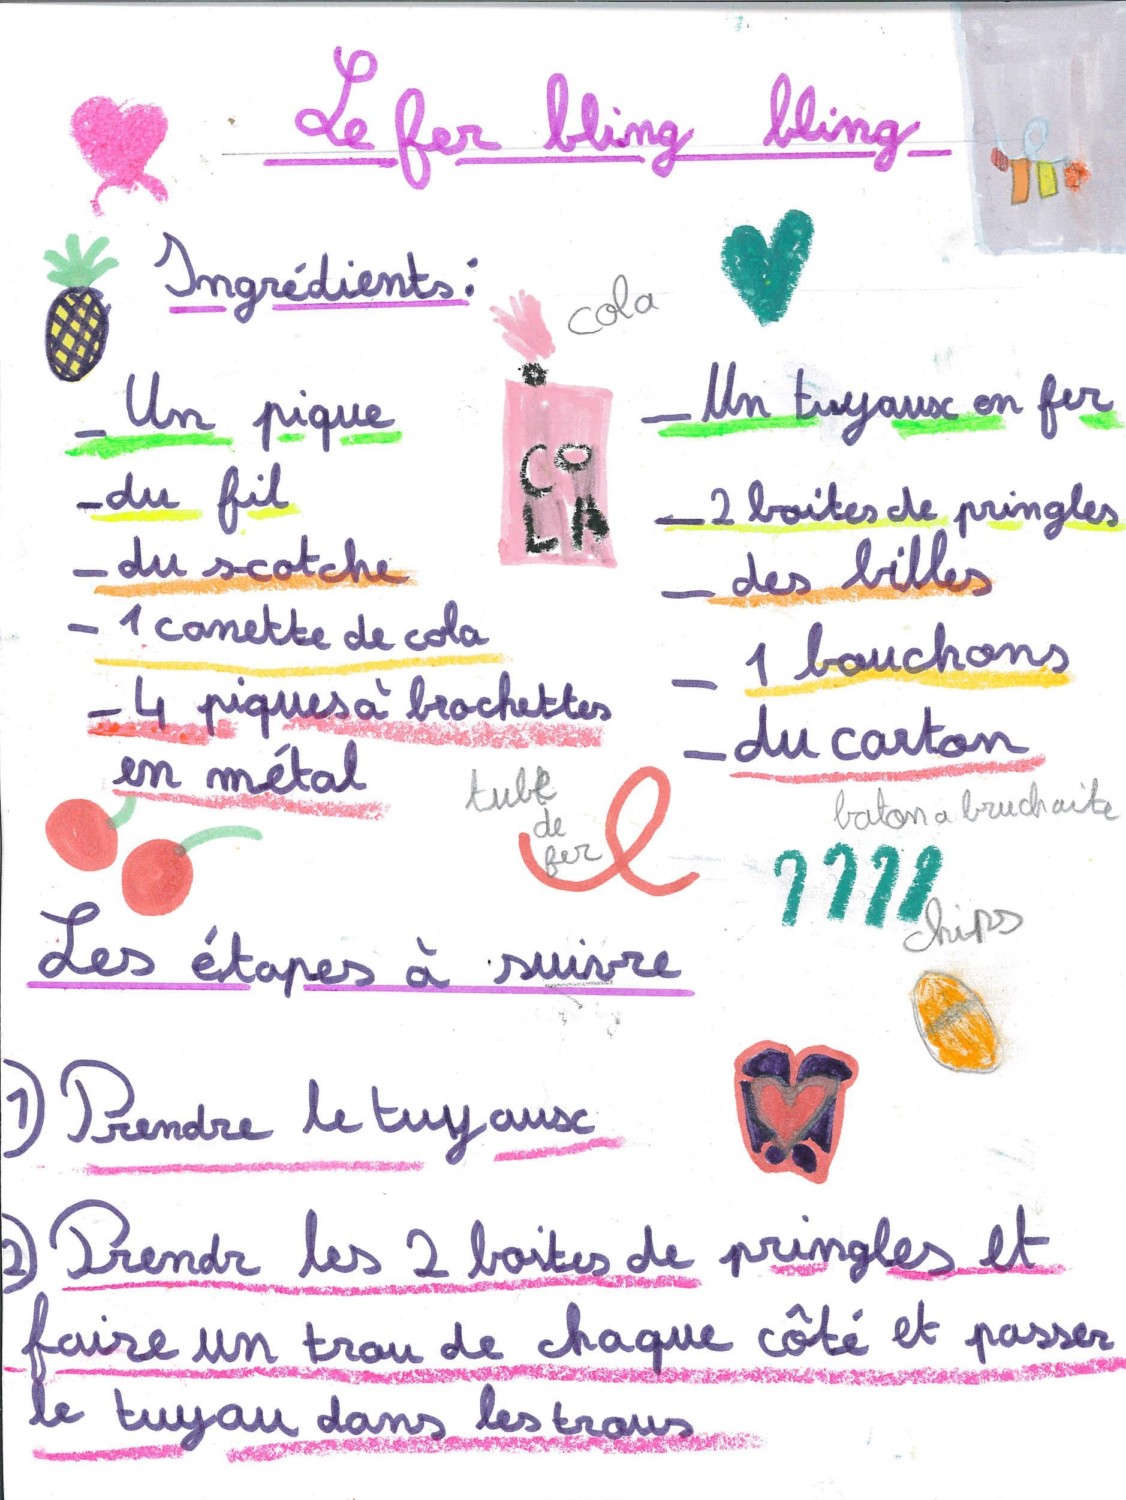 Le fer bling bling
Ingrédients:
cola
COLA
_ Un pique
- du fil
- du scotche
- 1 canette de cola
- 4 piques à brochettes
en métal
_ Un tuyaux en fer
_ 2 boites de pringles
_ des billes
_ 1 bouchons
_ du carton
tube
de
fer
baton a bruchaite
chips
Les étapes à suivre
1) Prendre le tuyaux
2) Prendr les 2 boites de pringles et
faire un trou de chaque côté et passer
le tuyau dans les trous